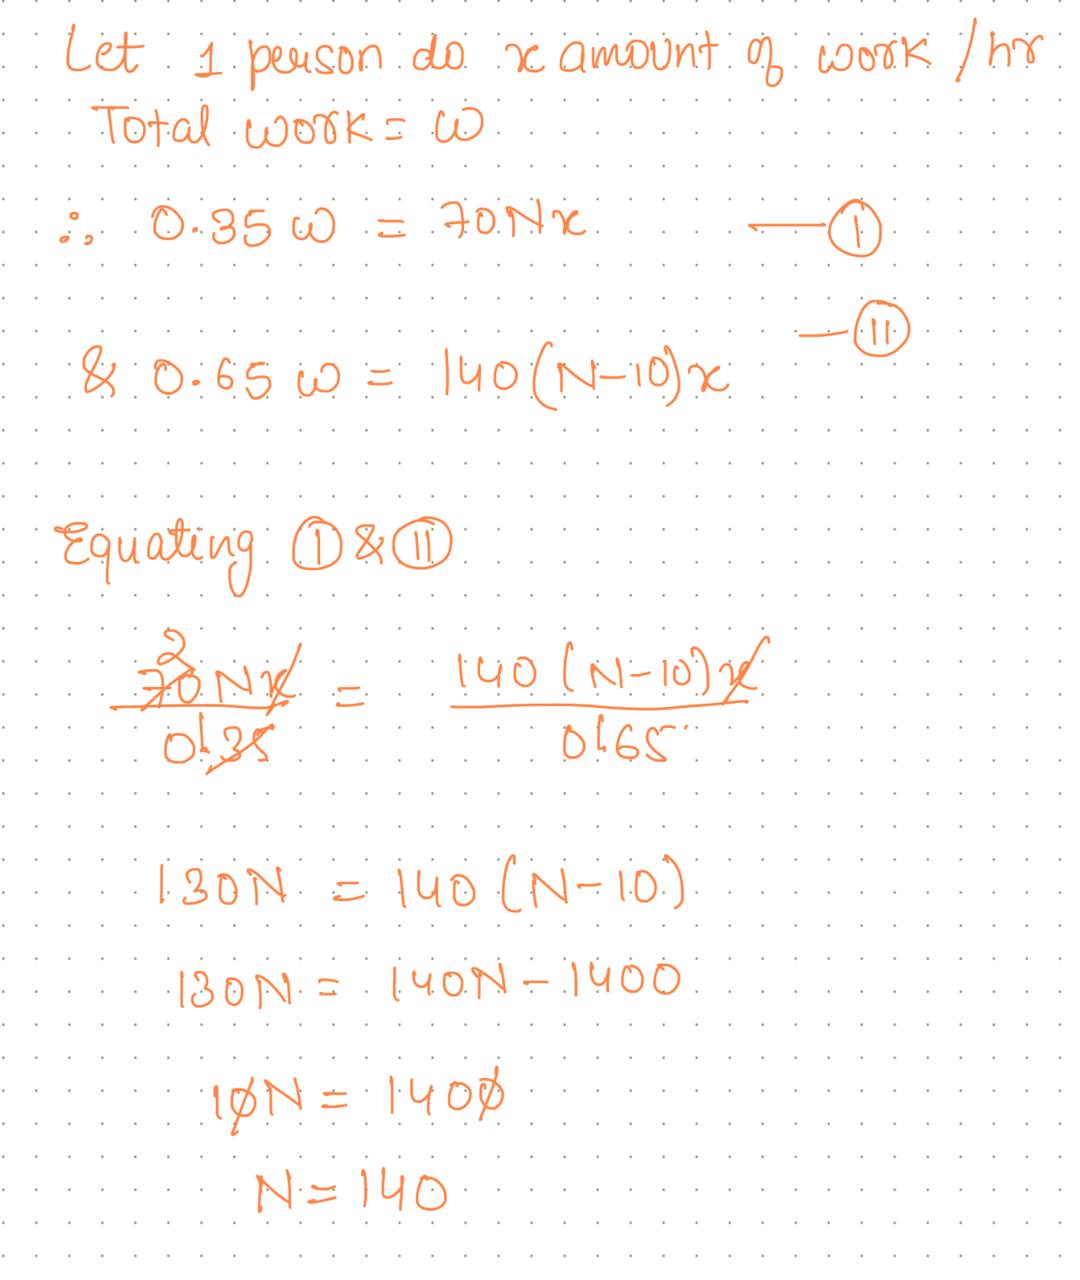 Let 1 person do x amount of work / hr
Total work = w
∴ 0.35 w = 70Nx — Ⓘ
& 0.65 w = 140(N-10)x — ⑪
Equating Ⓘ & ⑪
2
70Nx / 0.35 = 140(N-10)x / 0.65
130N = 140(N-10)
130N = 140N - 1400
10N = 1400
N = 140